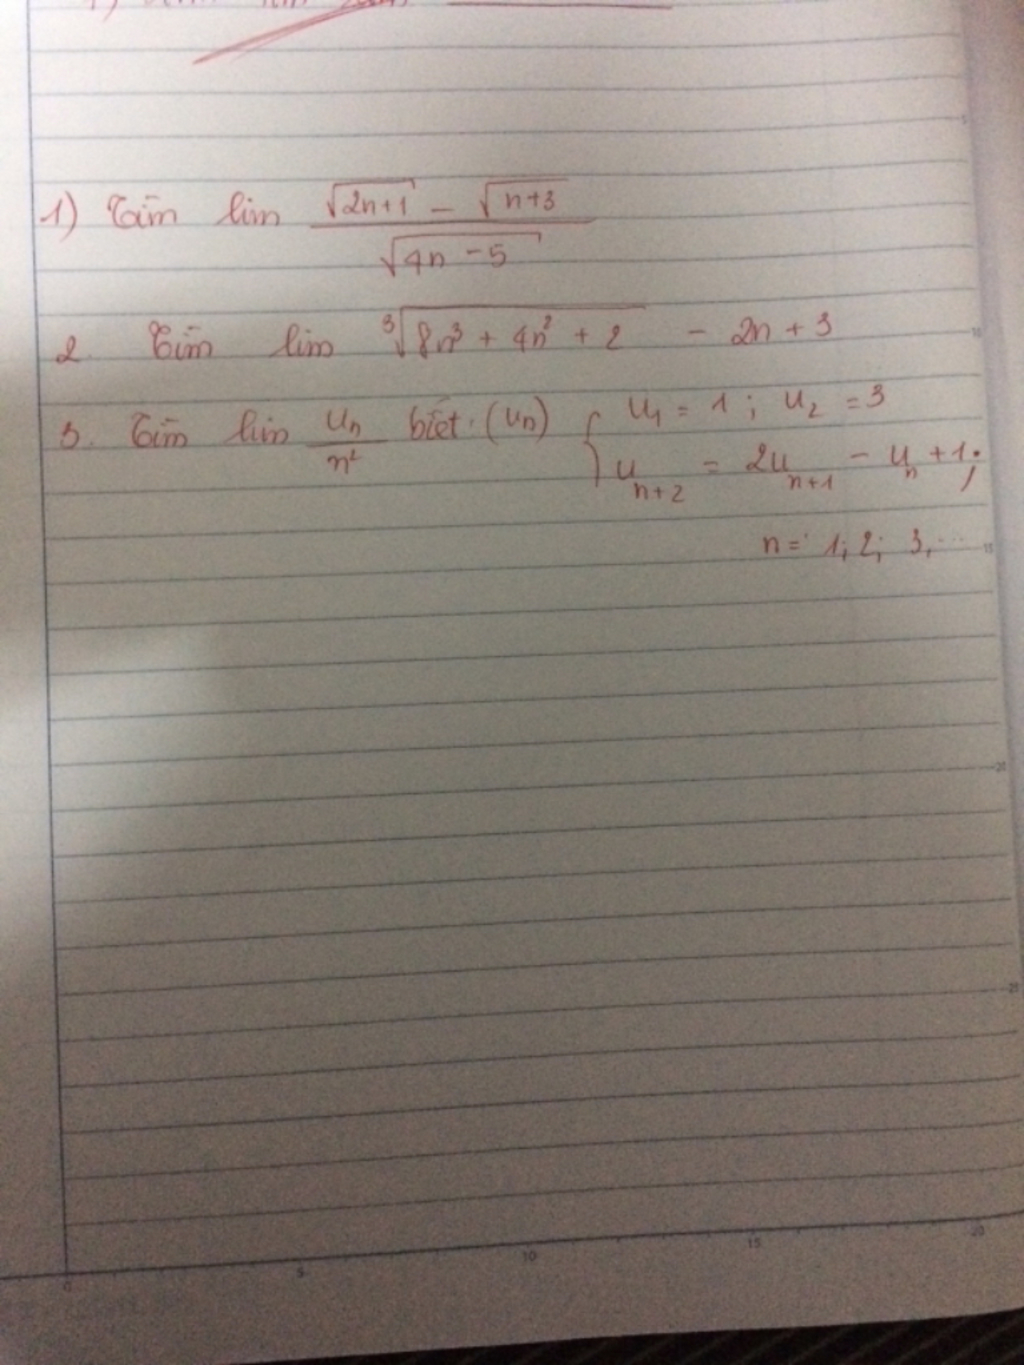 1) Tìm lim (√(2n+1) - √(n+3)) / √(4n-5)
2. Tìm lim ³√(8n³ + 4n² + 2) - 2n + 3
3. Tìm lim uₙ/n² biết (uₙ) { u₁ = 1 ; u₂ = 3
uₙ₊₂ = 2uₙ₊₁ - uₙ + 1;
n = 1; 2; 3, ...
5
10
15
20
25
0 5 10 15 20